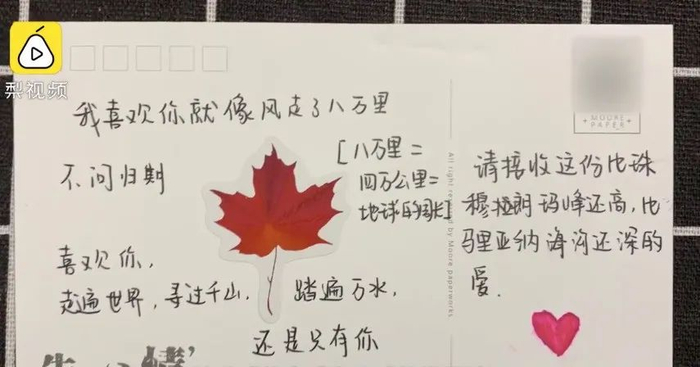 梨视频
我喜欢你就像风走了八万里
不问归期
[八万里=
四万公里=
地球的周长]
喜欢你,
走遍世界,寻过千山,踏遍万水,
还是只有你
MOORE
PAPER
All right reserved by Moore paperworks.
请接收这份比珠
穆拉朗玛峰还高,比
马里亚纳海沟还深的
爱.